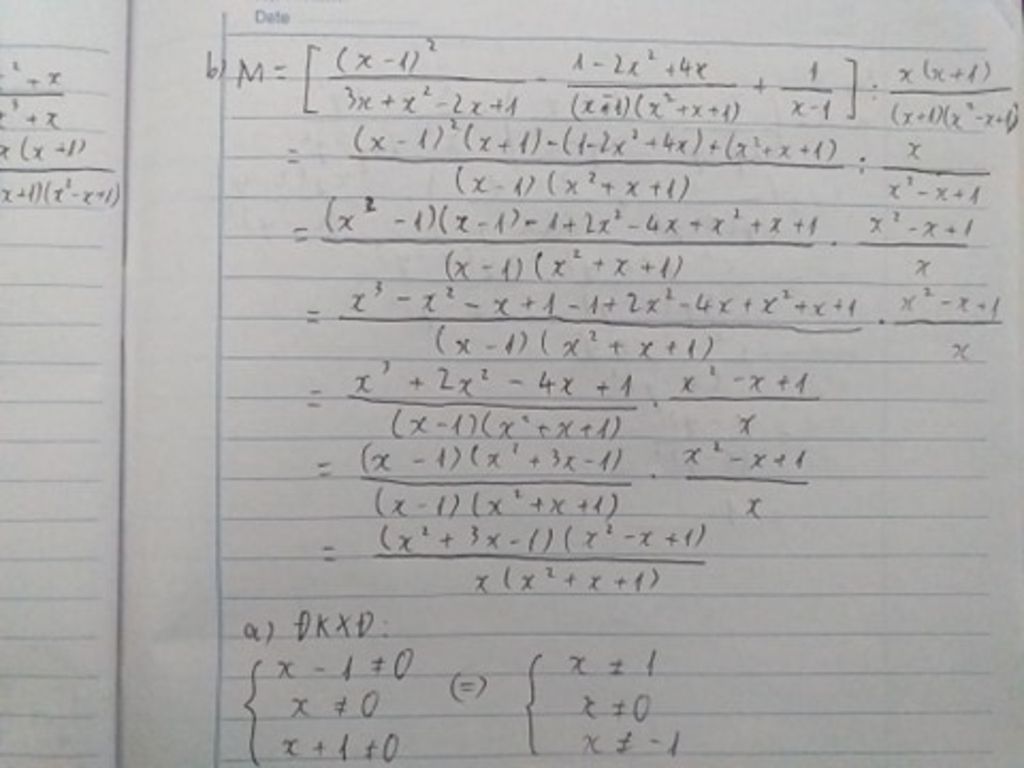 Date
² + x
x³ + x
x(x+1)
(x+1)(x²-x+1)
b) M = [ (x-1)² / (3x+x²-2x+1) - (1-2x²+4x) / ((x-1)(x²+x+1)) + 1 / (x-1) ] : x(x+1) / ((x+1)(x²-x+1))
= ((x-1)²(x+1)-(1-2x²+4x)+(x²+x+1)) / ((x-1)(x²+x+1)) : x / (x²-x+1)
= ((x²-1)(x-1)-1+2x²-4x+x²+x+1) / ((x-1)(x²+x+1)) . (x²-x+1) / x
= (x³-x²-x+1-1+2x²-4x+x²+x+1) / ((x-1)(x²+x+1)) . (x²-x+1) / x
= (x³+2x²-4x+1) / ((x-1)(x²+x+1)) . (x²-x+1) / x
= ((x-1)(x²+3x-1)) / ((x-1)(x²+x+1)) . (x²-x+1) / x
= ((x²+3x-1)(x²-x+1)) / (x(x²+x+1))
a) ĐKXĐ:
{ x-1≠0 (=) { x≠1
x≠0 x≠0
x+1≠0 x≠-1